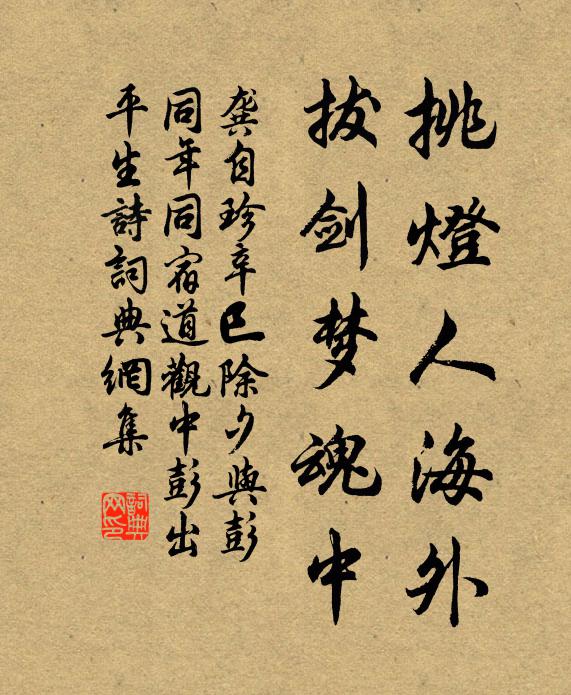 挑燈人海外
拔剑梦魂中
龔自珍辛巳除夕與彭
同年同宿道觀中彭出
平生詩詞典網集
詞典网印